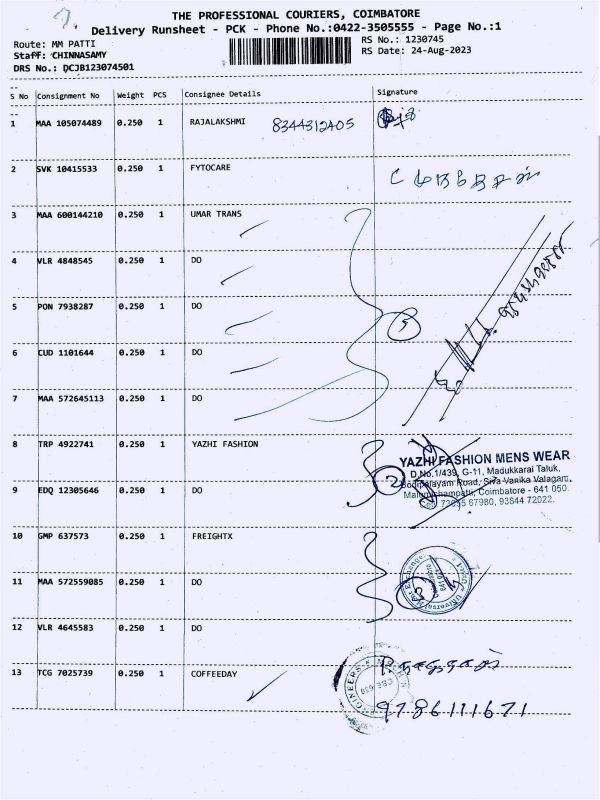 THE PROFESSIONAL COURIERS, COIMBATORE
Delivery Runsheet - PCK - Phone No.:0422-3505555 - Page No.:1
Route: MM PATTI RS No.: 1230745
Staff: CHINNASAMY RS Date: 24-Aug-2023
DRS No.: DCJB123074501
S No Consignment No Weight PCS Consignee Details Signature
1 MAA 105074489 0.250 1 RAJALAKSHMI 8344312405
2 SVK 10415533 0.250 1 FYTOCARE
3 MAA 600144210 0.250 1 UMAR TRANS
4 VLR 4848545 0.250 1 DO
5 PON 7938287 0.250 1 DO
5
6 CUD 1101644 0.250 1 DO
7 MAA 572645113 0.250 1 DO
8 TRP 4922741 0.250 1 YAZHI FASHION
YAZHI FASHION MENS WEAR
D.No.1/439, G-11, Madukkarai Taluk,
Bodipalayam Road, Siva Vanika Valagam,
Malumichampatti, Coimbatore - 641 050.
Cell: 73055 67980, 93844 72022.
9 EDQ 12305646 0.250 1 DO 2
10 GMP 637573 0.250 1 FREIGHTX
11 MAA 572559085 0.250 1 DO 3
12 VLR 4645583 0.250 1 DO
13 TCG 7025739 0.250 1 COFFEEDAY
ENGINEERS
9786111671